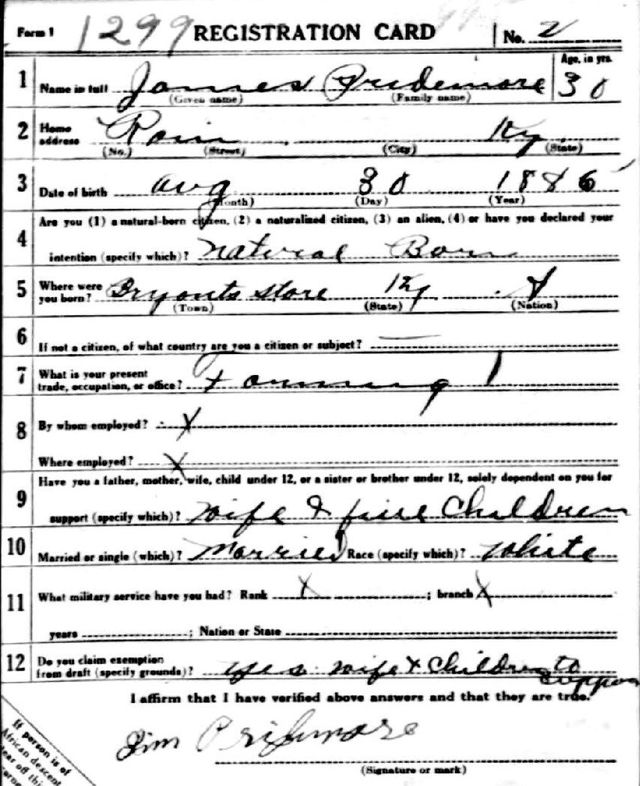 Form 1 1299 REGISTRATION CARD No. 2
1 Name in full James Pridemore Age, in yrs. 30
(Given name) (Family name)
2 Home address Rain Ky.
(No.) (Street) (City) (State)
3 Date of birth Aug 30 1886
(Month) (Day) (Year)
4 Are you (1) a natural-born citizen, (2) a naturalized citizen, (3) an alien, (4) or have you declared your
intention (specify which)? Natural Born
5 Where were you born? Bryants Store Ky
(Town) (State) (Nation)
6 If not a citizen, of what country are you a citizen or subject? —
7 What is your present trade, occupation, or office? Farming 1
8 By whom employed? X
Where employed? X
9 Have you a father, mother, wife, child under 12, or a sister or brother under 12, solely dependent on you for
support (specify which)? Wife & five Children
10 Married or single (which)? Married Race (specify which)? White
11 What military service have you had? Rank X ; branch X
years ; Nation or State
12 Do you claim exemption from draft (specify grounds)? yes wife & Children to support
I affirm that I have verified above answers and that they are true.
Jim Pridmore
(Signature or mark)
If person is of
African descent
tear off this
corner